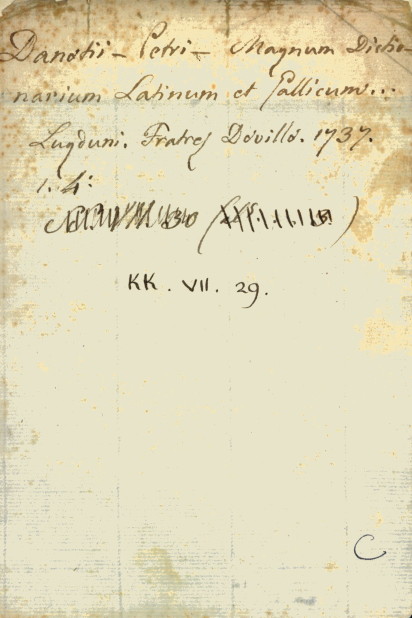 Danetii - Petri - Magnum Dictio-
narium Latinum et Gallicum...
Lugduni. Fratres Deville. 1737.
1. 4:
KK. VII. 29.
C